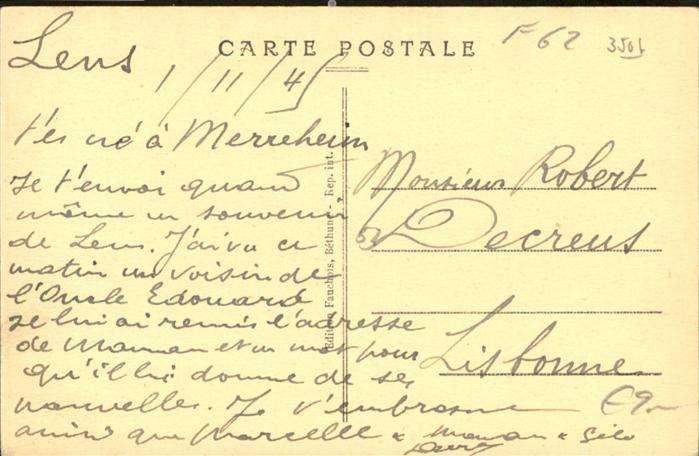 CARTE POSTALE
F 62
350f
Lens
1/11/45
t'es né à Merreheim
Je t'envoi quand
même un souvenir
de Lens. J'ai vu ce
matin un voisin de
l'Oncle Edouard
je lui ai remis l'adresse
de Maman et un mot pour
qu'il lui donne de ses
nouvelles. Je t'embrasse
ainsi que Marcelle &
Editions Fauchois, Béthune - Rep. int.
Monsieur Robert
Decreus
Lisbonne
€9.-